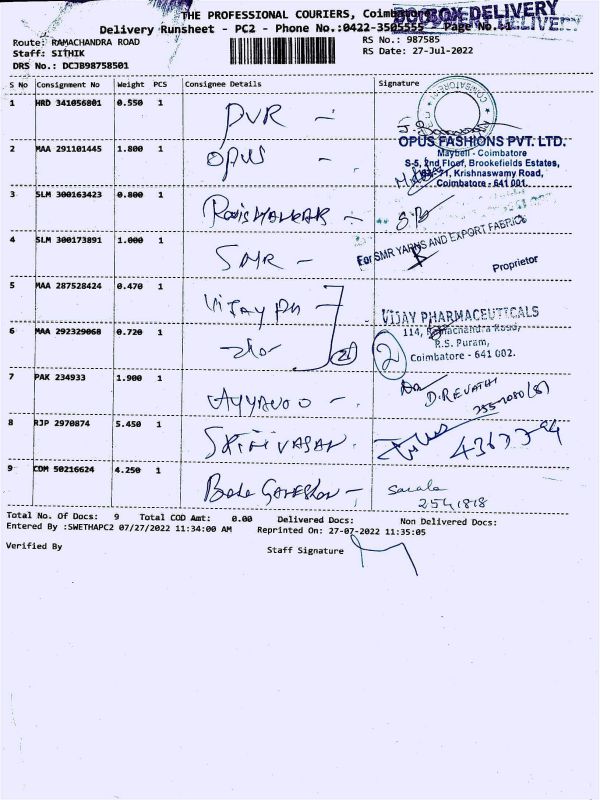 THE PROFESSIONAL COURIERS, Coimbatore
BOX DELIVERY
Delivery Runsheet - PC2 - Phone No.:0422-3505555 Page No.
Route: RAMACHANDRA ROAD
RS No.: 987585
Staff: SITHIK
RS Date: 27-Jul-2022
DRS No.: DCJB98758501
S No Consignment No Weight PCS Consignee Details Signature
1 HRD 341056801 0.550 1 PVR -
OPUS FASHIONS PVT. LTD.
Maybell - Coimbatore
2 MAA 291101445 1.800 1 OPUS -
S-5, 2nd Floor, Brookefields Estates,
Krishnaswamy Road,
Coimbatore - 641 001.
3 SLM 300163423 0.800 1
For SMR YARNS AND EXPORT FABRICS
4 SLM 300173891 1.000 1 SMR -
Proprietor
5 MAA 287528424 0.470 1 VIJAY PH
VIJAY PHARMACEUTICALS
114, Ramachandra Road,
6 MAA 292329068 0.720 1
2
R.S. Puram,
Coimbatore - 641 002.
7 PAK 234933 1.900 1 AYYAVOO -
D. REVATHI
8 RJP 2970874 5.450 1 SRINIVASAN.
9 CDM 50216624 4.250 1 Bala GANESHAN -
Sarala
2541818
Total No. Of Docs: 9 Total COD Amt: 0.00 Delivered Docs: Non Delivered Docs:
Entered By :SWETHAPC2 07/27/2022 11:34:00 AM Reprinted On: 27-07-2022 11:35:05
Verified By
Staff Signature